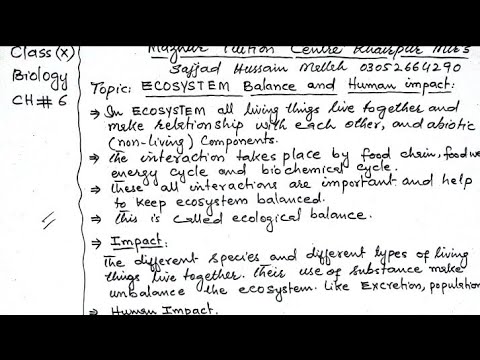 Class (X)
Biology
CH# 6
Mazhar Tuition Centre Khairpur Mir's
Sajjad Hussain Melleh 03052664290
Topic: ECOSYSTEM Balance and Human impact:
⇒ In ECOSYSTEM all living things live together and
make relationship with each other, and abiotic
(non-living) Components.
⇒ The interaction takes place by food chain, food we
energy cycle and biochemical cycle.
⇒ These all interactions are important and help
to keep ecosystem balanced.
⇒ This is called ecological balance.
⇒ Impact:
The different species and different types of living
things live together. Their use of substance make
unbalance the ecosystem. Like Excretion, population
⇒ Human Impact.